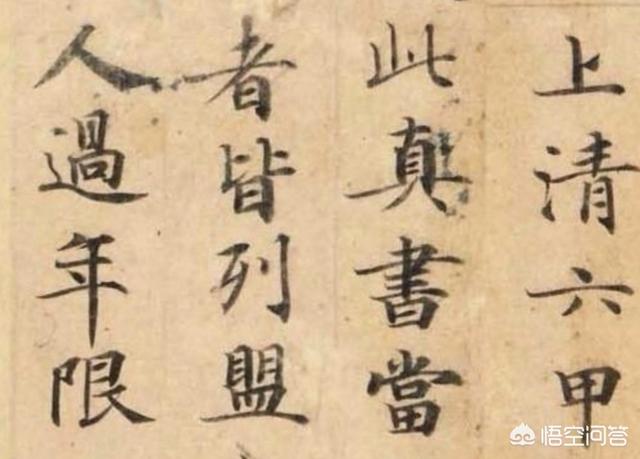 上清六甲
此真書當
者皆列盟
人過年限
悟空问答